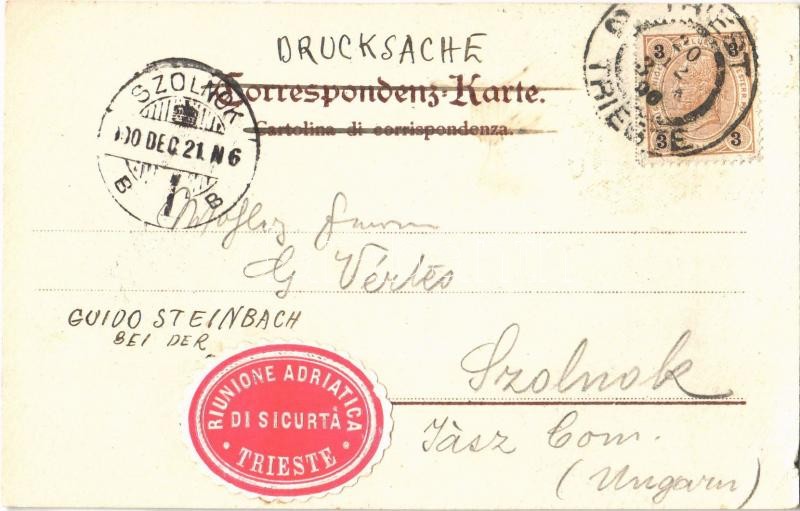 DRUCKSACHE
Correspondenz-Karte.
Cartolina di corrispondenza.
SZOLNOK
DEC. 21. N 6
B B
TRIEST
TRIESTE
3 3
3 3
G Vértes
GUIDO STEINBACH
BEI DER
RIUNIONE ADRIATICA
DI SICURTÀ
· TRIESTE ·
Szolnok
Jász Com.
(Ungarn)